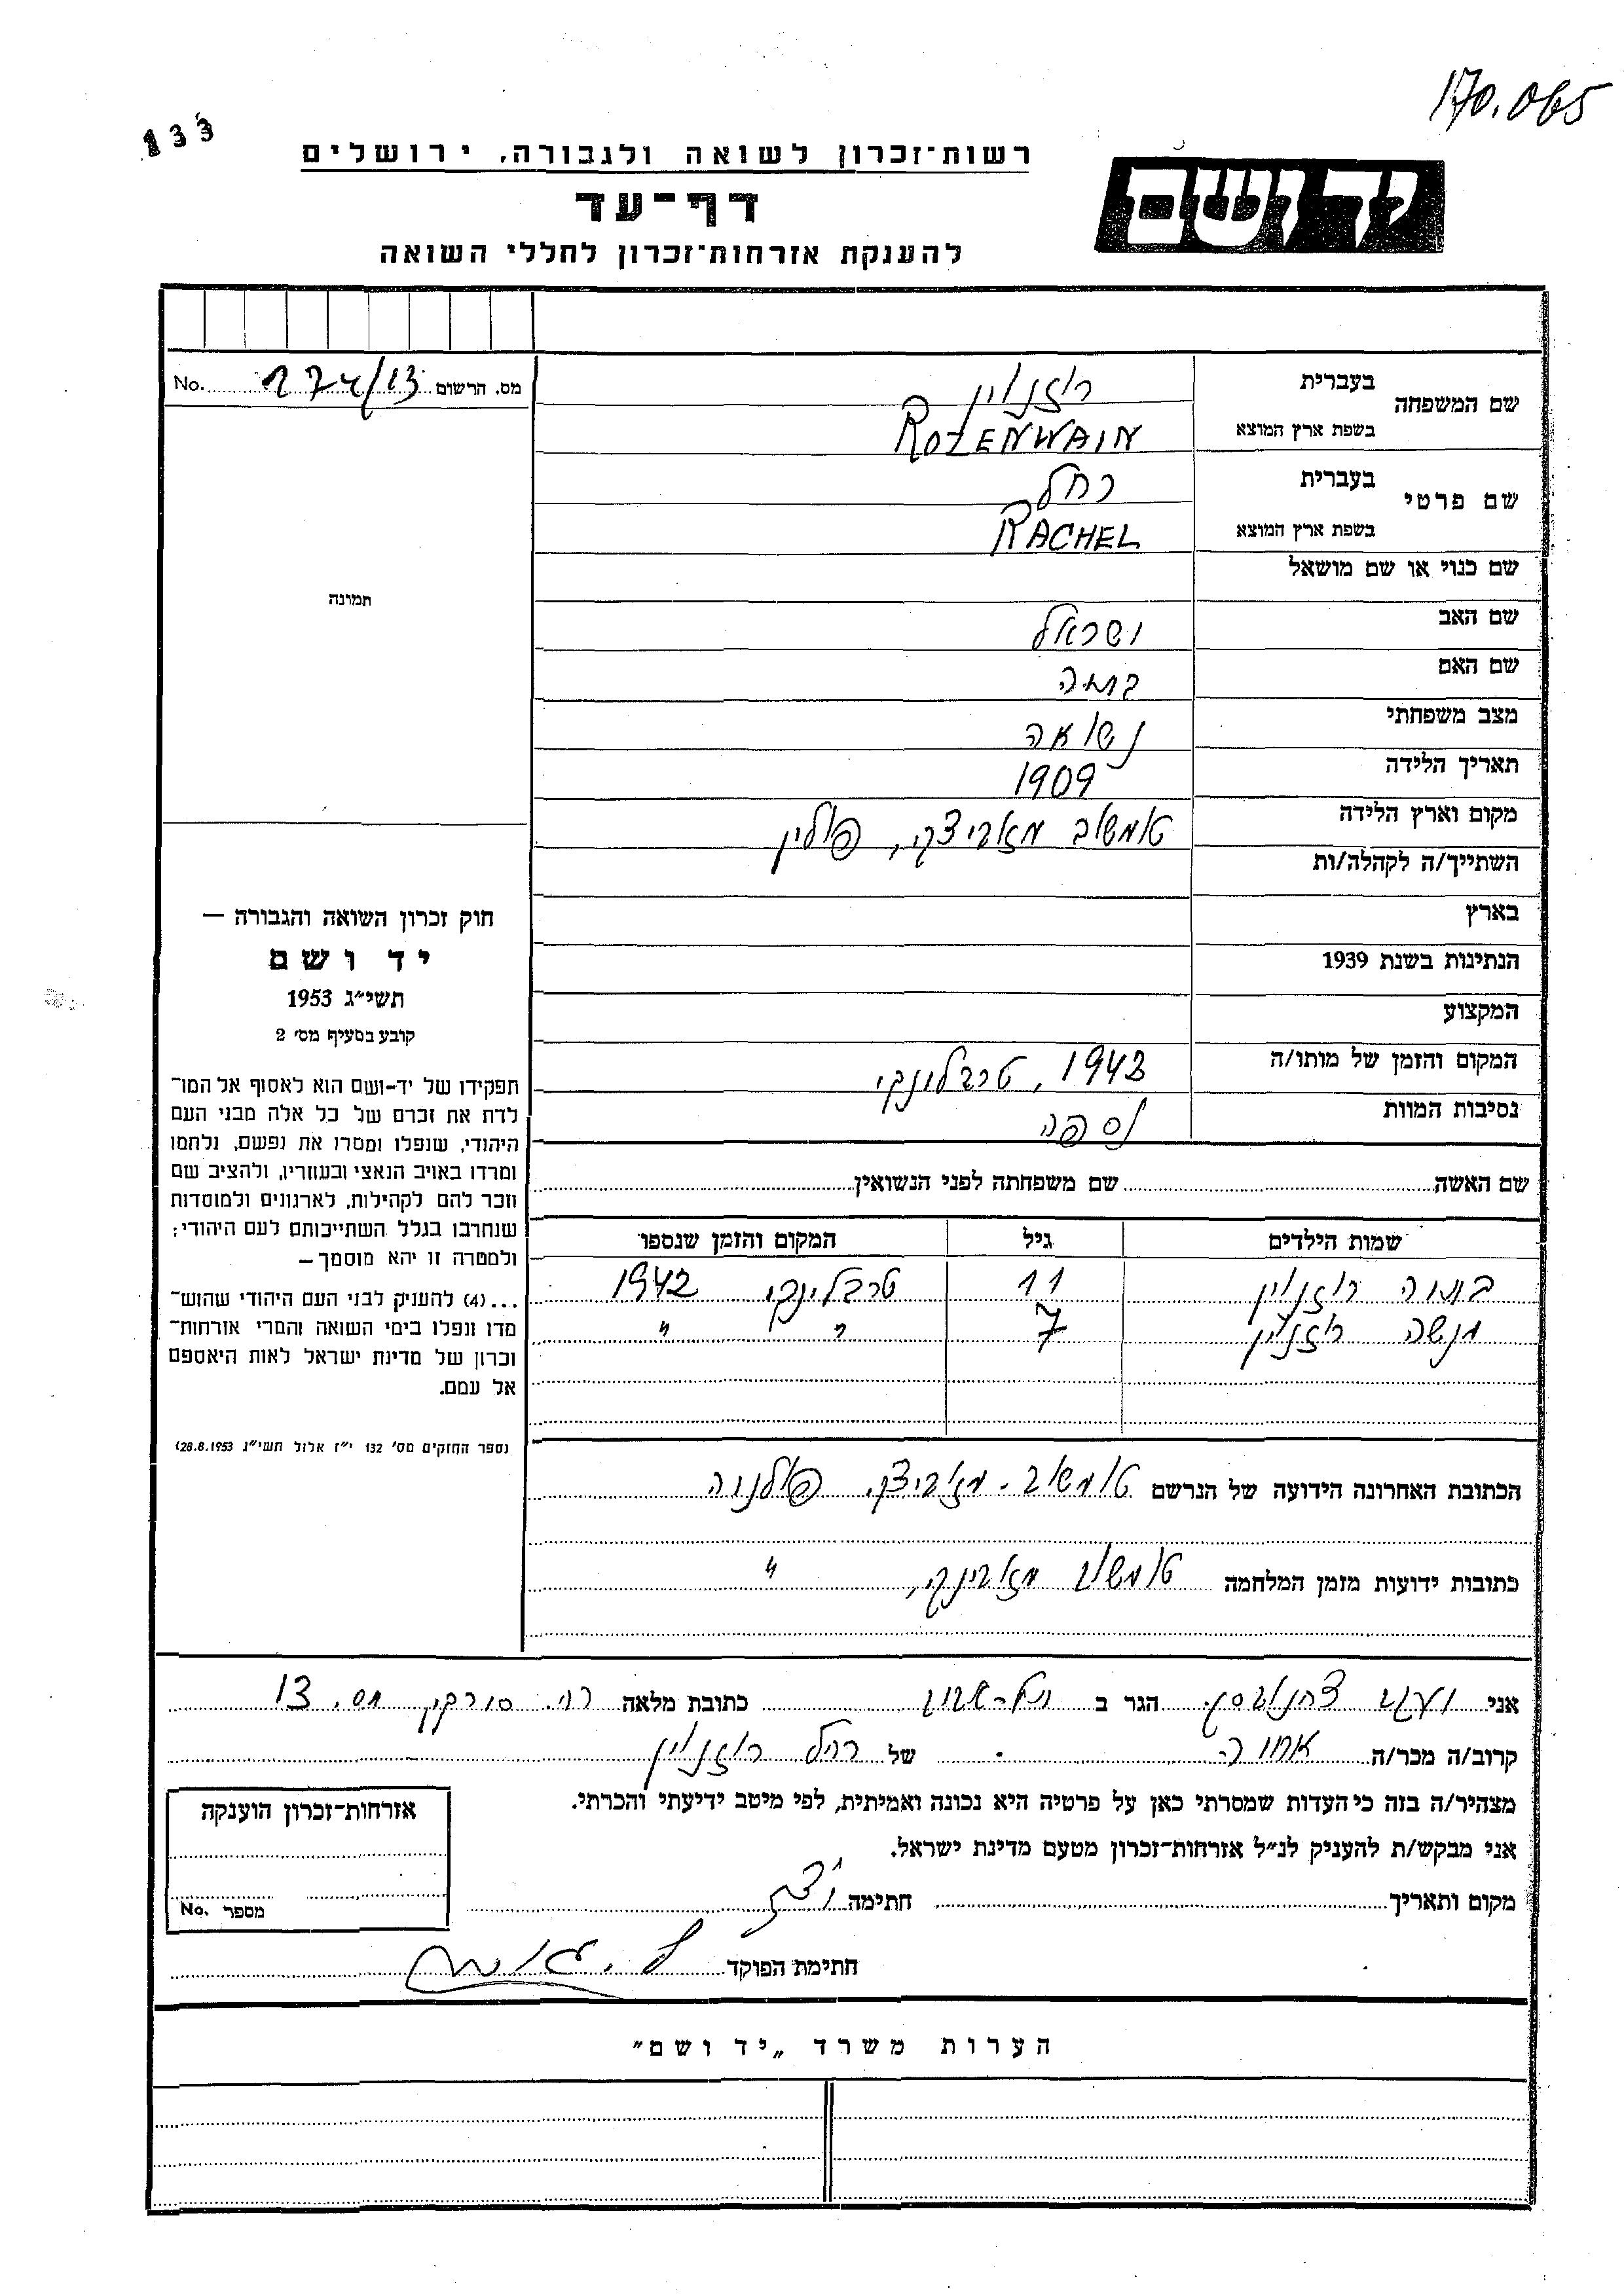 170.065
133
יד ושם
רשות־זכרון לשואה ולגבורה, ירושלים
דף־עד
להענקת אזרחות־זכרון לחללי השואה
מס. הרשום 174/13 No.
שם המשפחה בעברית רוזנוין
בשפת ארץ המוצא ROZENWAIN
שם פרטי בעברית רחל
בשפת ארץ המוצא RACHEL
שם כנוי או שם מושאל
שם האב ישראל
שם האם
מצב משפחתי נשואה
תאריך הלידה 1909
מקום וארץ הלידה טומשוב מאזוביצקי, פולין
השתייך/ה לקהלה/ות
בארץ
הנתינות בשנת 1939
המקצוע
המקום והזמן של מותו/ה 1942, טרבלינקי
נסיבות המוות נספה
תמונה
חוק זכרון השואה והגבורה —
יד ושם
תשי״ג 1953
קובע בסעיף מס׳ 2
תפקידו של יד-ושם הוא לאסוף אל המו־
לדת את זכרם של כל אלה מבני העם
היהודי, שנפלו ומסרו את נפשם, נלחמו
ומרדו באויב הנאצי ובעוזריו, ולהציב שם
וזכר להם לקהילות, לארגונים ולמוסדות
שנחרבו בגלל השתייכותם לעם היהודי;
ולמטרה זו יהא מוסמך —
...(4) להעניק לבני העם היהודי שהוש־
מדו ונפלו בימי השואה והמרי אזרחות־
זכרון של מדינת ישראל לאות היאספם
אל עמם.
(ספר החוקים מס׳ 132 י״ז אלול תשי״ג 28.8.1953)
שם האשה שם משפחתה לפני הנשואין
שמות הילדים גיל המקום והזמן שנספו
רוזנוין 11 טרבלינקי 1942
מנשה רוזנוין 7 " "
הכתובת האחרונה הידועה של הנרשם טומשוב - מזוביצקי, פולניה
כתובות ידועות מזמן המלחמה טומשוב "
אני יעקב הגר ב תל-אביב כתובת מלאה רח. סורקין מס. 13
קרוב/ה מכר/ה של רחל רוזנוין
מצהיר/ה בזה כי העדות שמסרתי כאן על פרטיה היא נכונה ואמיתית, לפי מיטב ידיעתי והכרתי.
אני מבקש/ת להעניק לנ״ל אזרחות־זכרון מטעם מדינת ישראל.
מקום ותאריך חתימה
חתימת הפוקד
אזרחות־זכרון הוענקה
מספר No.
הערות משרד „יד ושם״